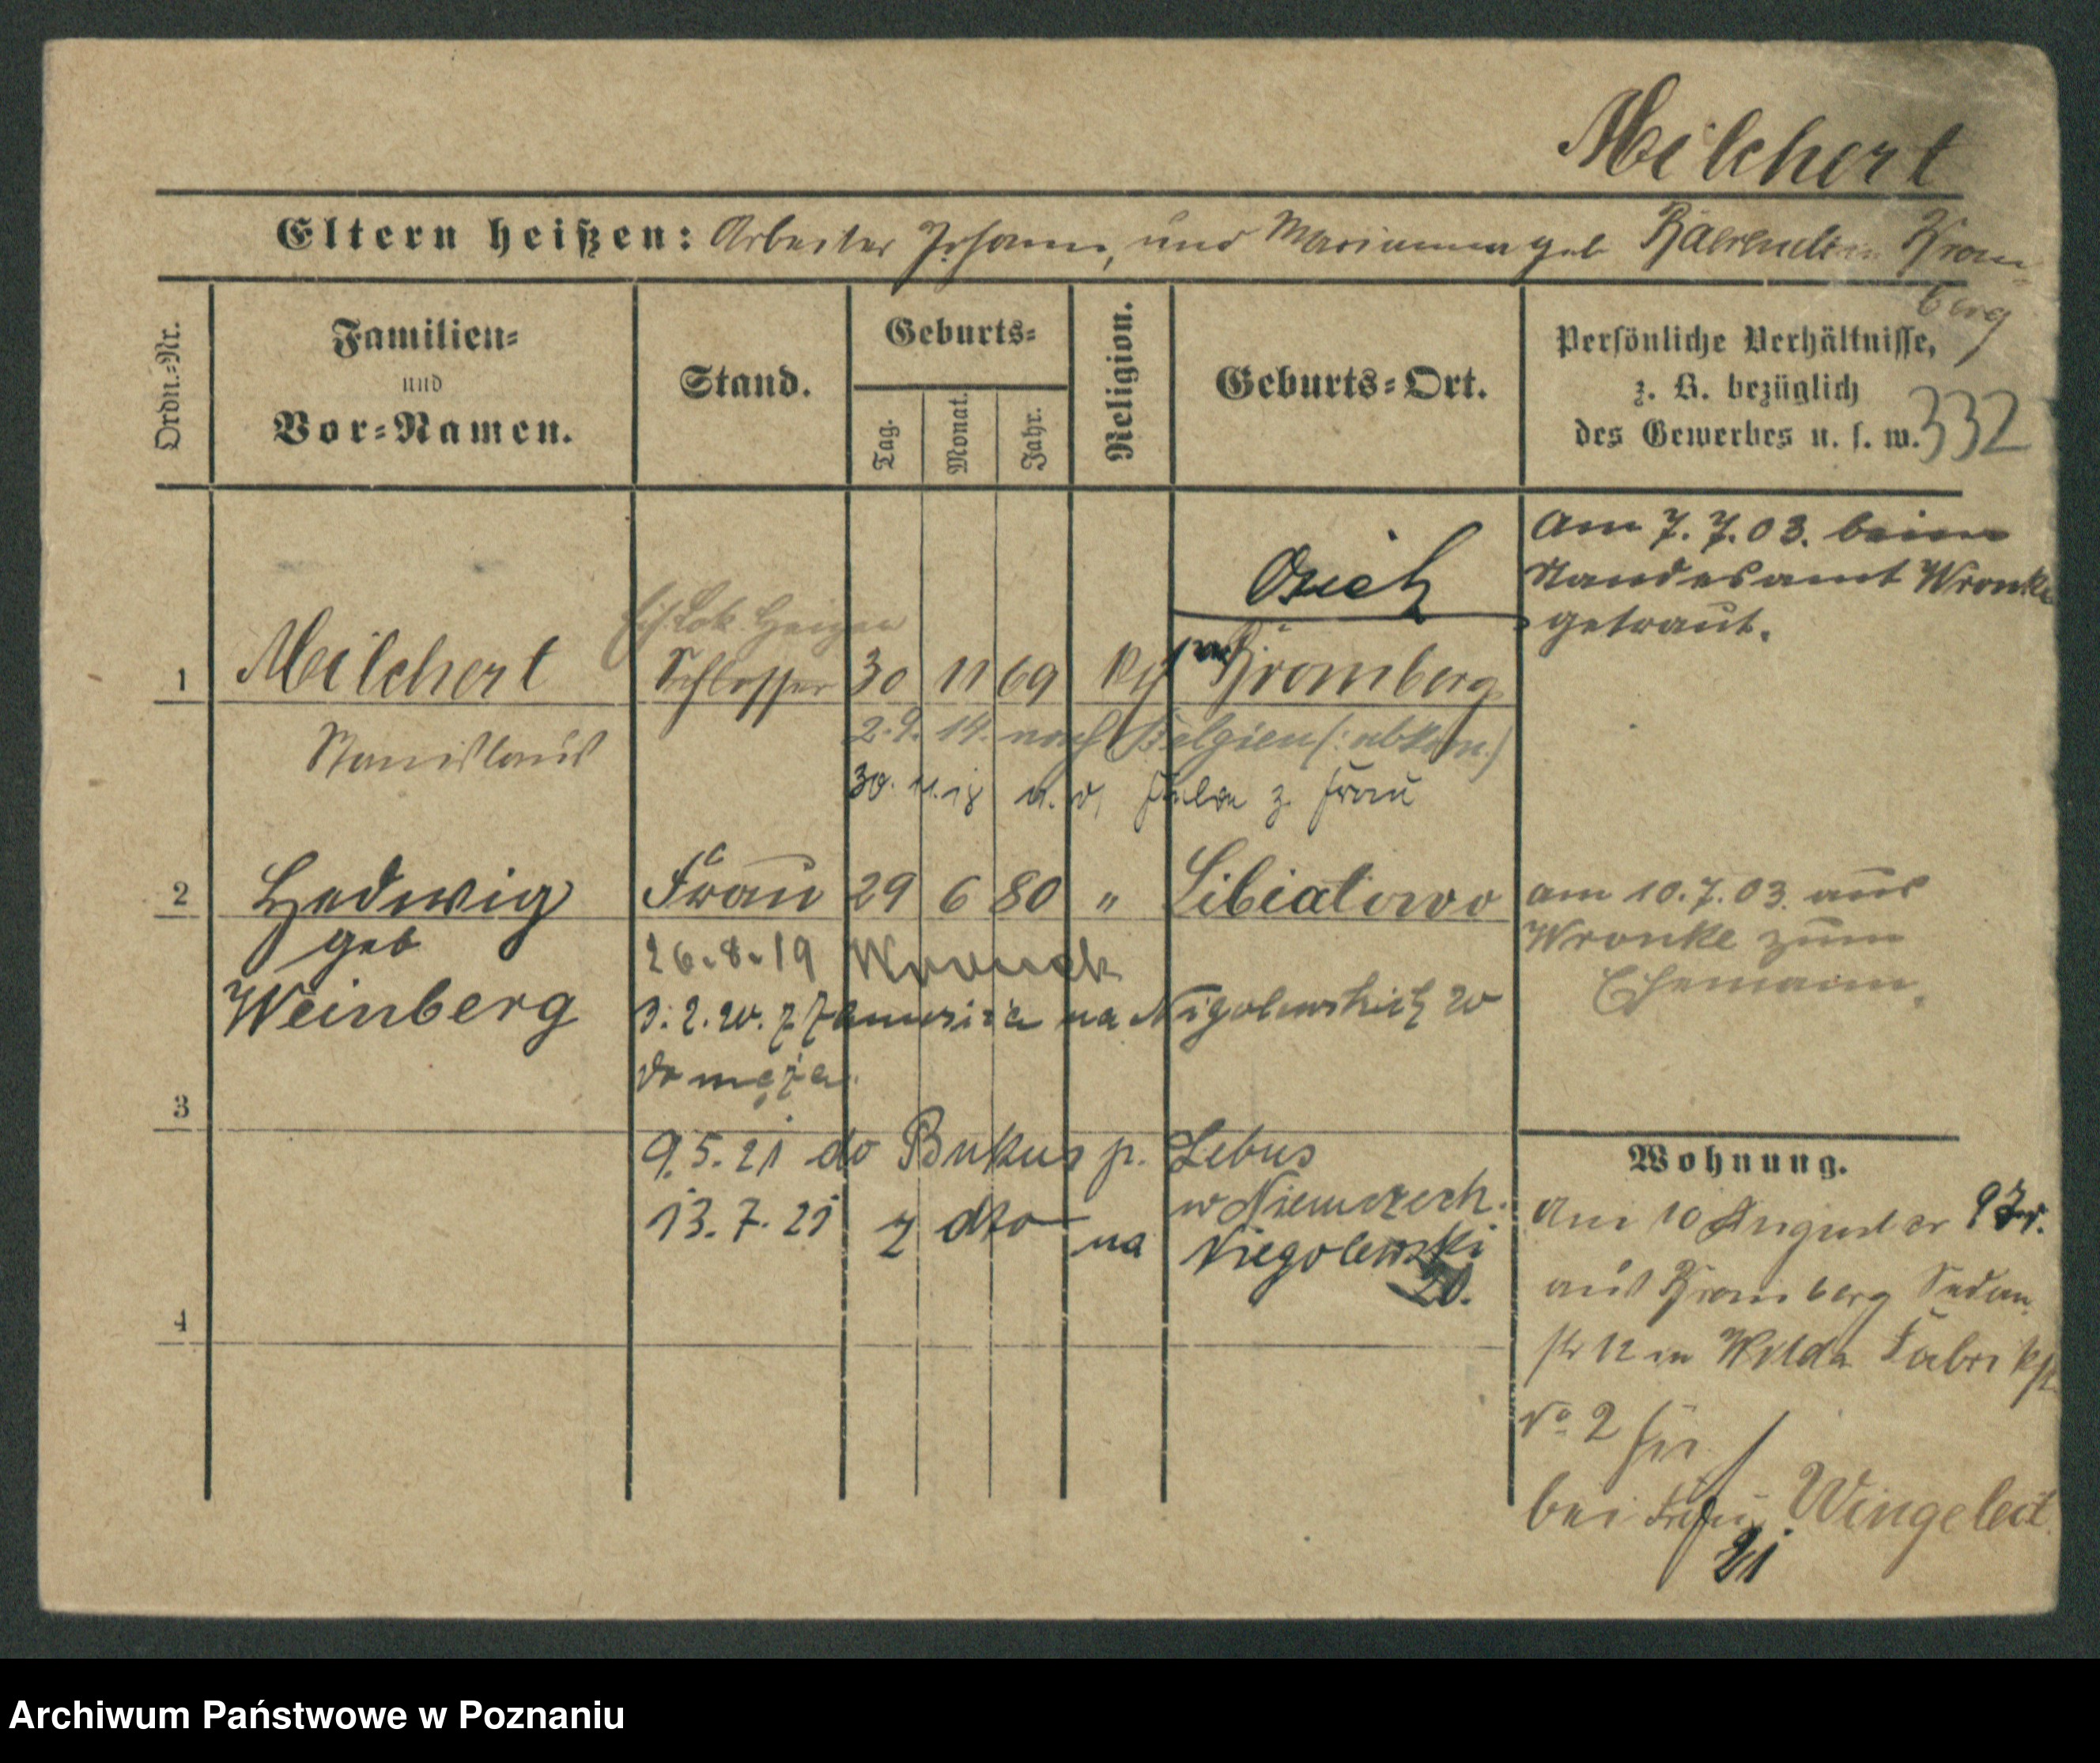 Milchert
Eltern heißen: Arbeiter Johann, und Marianna geb Brom-
berg
Ordn.-Nr.
Familien-
und
Vor-Namen.
Stand.
Geburts-
Tag.
Monat.
Jahr.
Religion.
Geburts-Ort.
Persönliche Verhältnisse,
z. B. bezüglich
des Gewerbes u. s. w.
332
Am 7. 7. 03. beim
Standesamt Wronke
getraut.
Lok. Heizer
1 Milchert Schlosser 30 11 69 Bromberg
Stanislaus
2. 9. 14. nach Belgien
30. 11. 18 z. Frau
2 Hedwig Frau 29 6 80 " Libiatowo
geb
Weinberg
am 10. 7. 03. aus
Wronke zum
Ehemann.
26. 8. 19
3. 2. 20. na 20
do męża.
3
9. 5. 21 do Bukus p. Lebus
w Niemczech.
13. 7. 21 z dto na Niegolewski
20.
4
Wohnung.
Am 10 August er 97.
aus Bromberg Sedan
str 12 in Wilda Fabrikst
No 2 für
bei
21
Archiwum Państwowe w Poznaniu